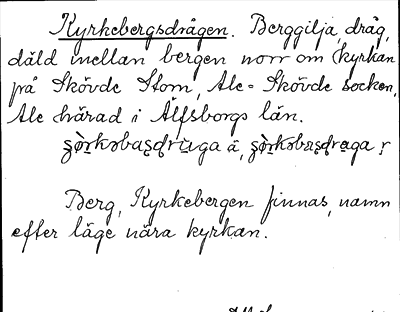 Kyrkebergsdrågen. Berggilja, dråg,
dåld mellan bergen norr om kyrkan
på Skövde Stom, Ale-Skövde socken,
Ale härad i Älfsborgs län.
Berg, Kyrkebergen finnas, namn
efter läge nära kyrkan.